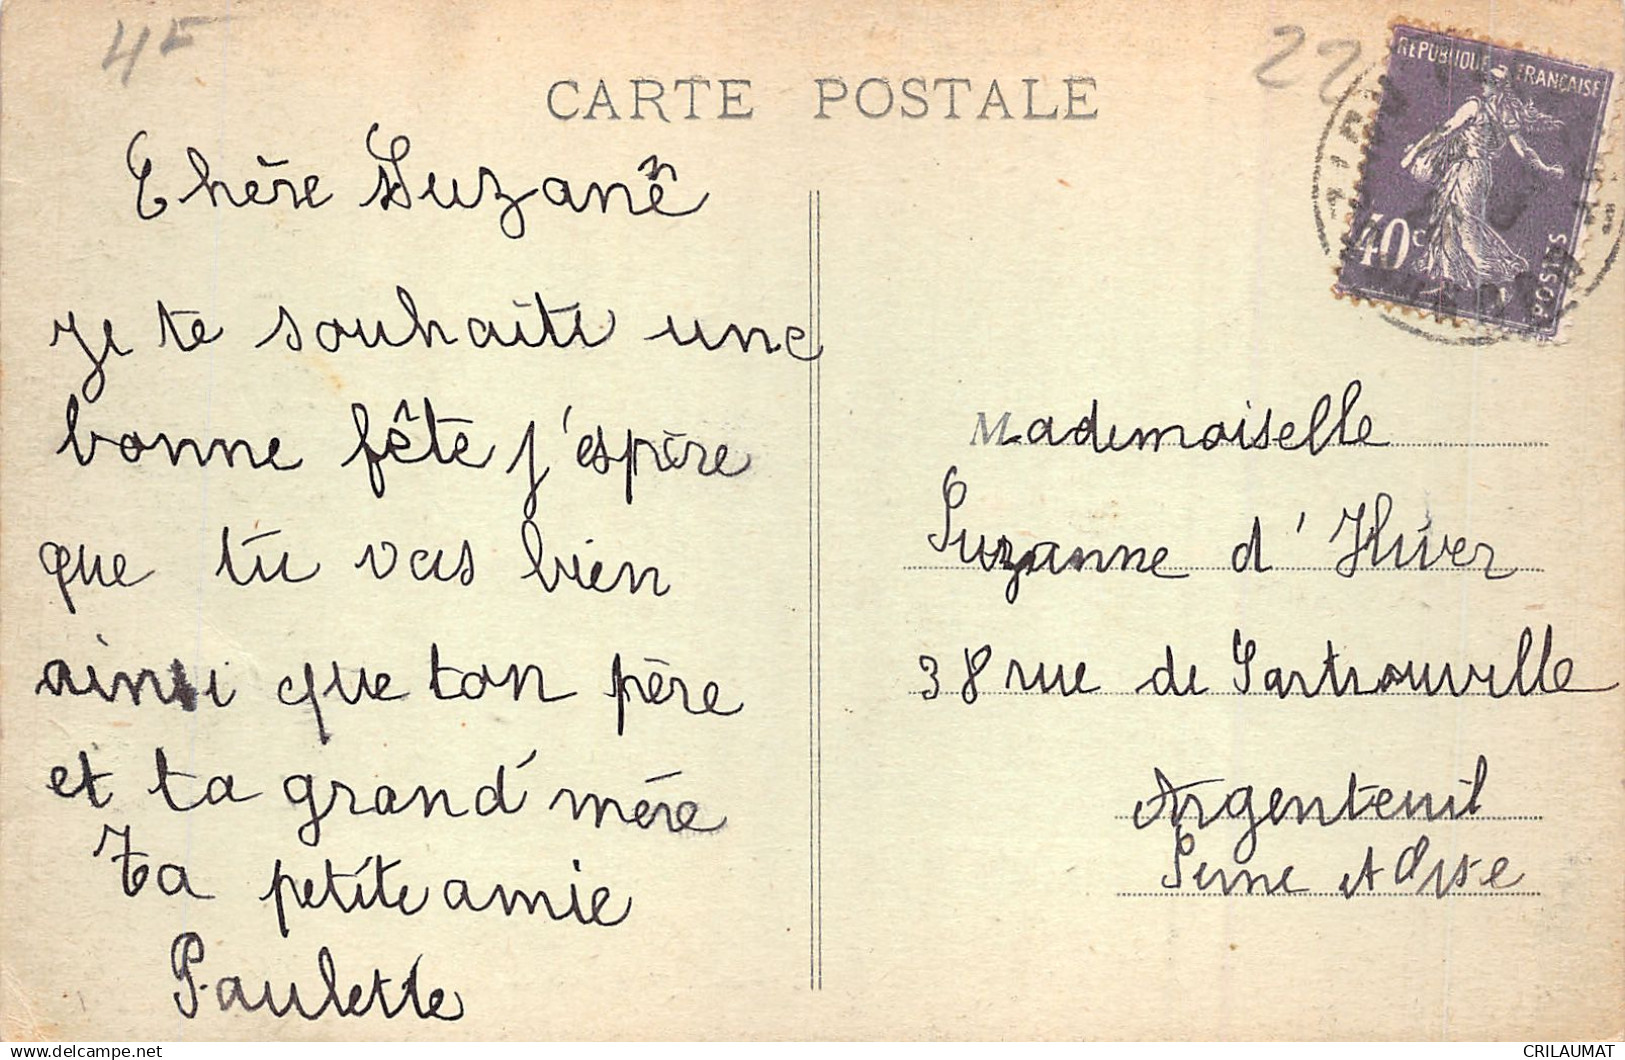 4F
22
CARTE POSTALE
REPUBLIQUE FRANÇAISE
40c
POSTES
Chère Suzanê
Je te souhaite une
bonne fête j'espère
que tu vas bien
ainsi que ton père
et ta grand'mère
Ta petite amie
Paulette
Mademoiselle
Suzanne d'Hiver
38 rue de Sartrouville
Argenteuil
Seine et Oise
CRILAUMAT